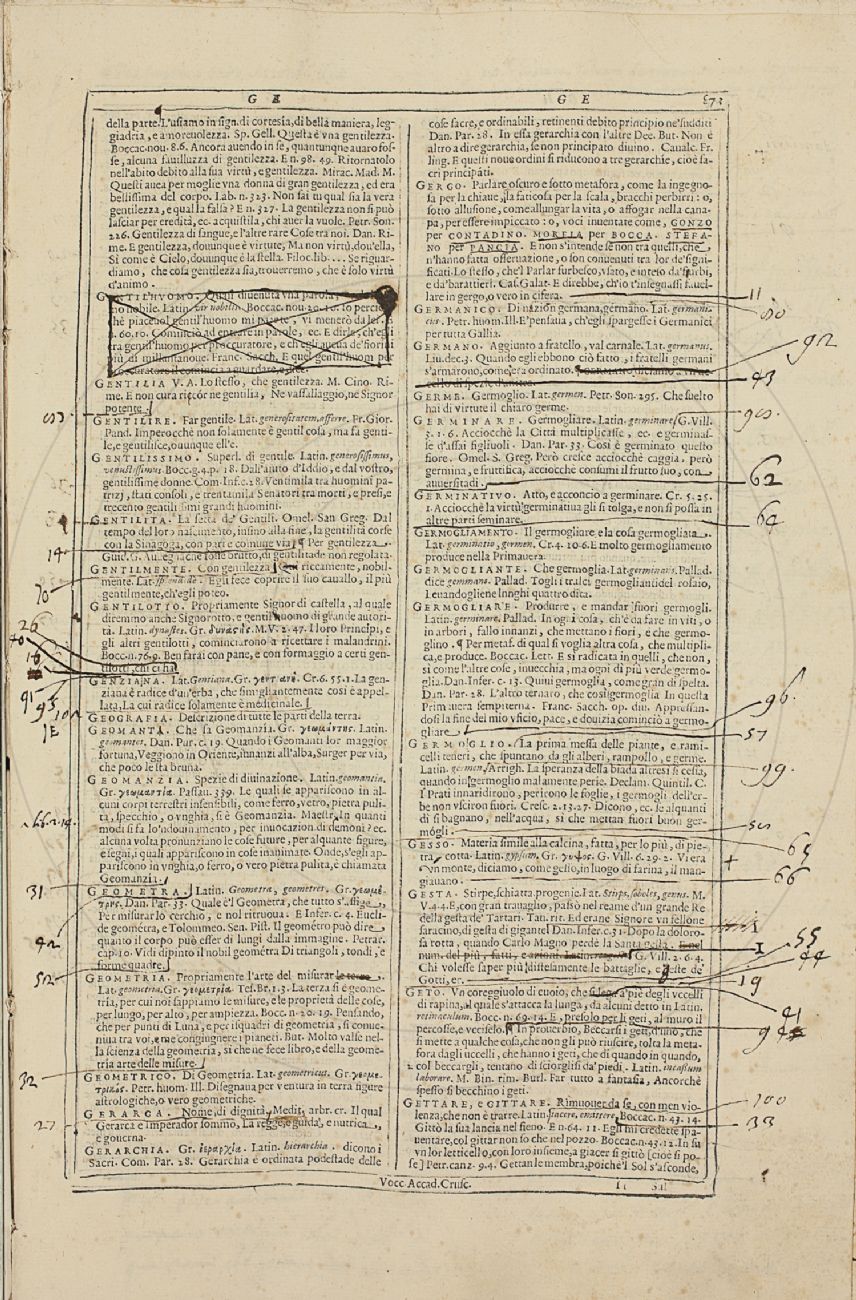 G E
G E
373
della parte. L'usiamo in sign. di cortesia, di bella maniera, leg-
giadria, e amoreuolezza. Sp. Gell. Questa è vna gentilezza.
Boccac. nou. 8.6. Ancora auendo in se, quantunque auaro fos-
se, alcuna fauilluzza di gentilezza. E n. 98. 49. Ritornatolo
nell'abito debito alla sua virtù, e gentilezza. Mirac. Mad. M.
Questi auea per moglie vna donna di gran gentilezza, ed era
bellissima del corpo. Lab. n. 323. Non sai tu qual sia la vera
gentilezza, e qual la falsa? E n. 327. La gentilezza non si può
lasciar per eredità, ec. acquistila, chi auer la vuole. Petr. Son.
226. Gentilezza di sangue, e l'altre rare Cose tra noi. Dan. Ri-
me. E gentilezza, douunque è virtute, Ma non virtù, dou'ella,
Sì come è Cielo, dounque è la stella. Filoc. lib. ... Se riguar-
diamo, che cosa gentilezza sia, trouerremo, che è solo virtù
d'animo.
GENTIL'HVOMO. Quasi diuentata vna parola,
mo nobile. Latin. vir nobilis. Boccac. nou. 20. 10. Io perciò
chè piacendol gentil'huomo mi niente, vi menerò da lei.
60. 10. Cominciò, ad entrare in parole, ec. E dirle, ch'egli
era gentil'huomo per proccuratore, e ch'egli auea de' fiorini
più di millantanoue. Franc. Sacch. E quel gentil'huom per
GENTILIA V. A. Lo stesso, che gentilezza. M. Cino. Ri-
me. E non cura riccór ne gentilia, Ne vassallaggio, ne Signor
potente.
GENTILIRE. Far gentile. Lat. generositatem afferre. Fr. Gior.
Pand. Imperocchè non solamente è gentil cosa, ma fa genti-
le, e gentilisce, ouunque ell'è.
GENTILISSIMO. Superl. di gentile. Latin. generosissimus,
venustissimus. Bocc. g. 4. p. 18. Dall'aiuto d'Iddio, e dal vostro,
gentilissime donne. Com. Inf. c. 28. Ventimila tra huomini pa-
trizj, stati consoli, e trentamila Senatori tra morti, e presi, e
trecento gentilissimi grandi huomini.
GENTILITA. La setta de' Gentili. Omel. San Greg. Dal
tempo del loro nascimento, insino alla fine, la gentilità corse
con la Sinagoga, con pari e comune via. ¶ Per gentilezza.
Guid. G. Auuegnachè fosse brutto, di gentilitade non regolata.
GENTILMENTE. Con gentilezza, riccamente, nobil-
mente. Lat. splendide. Egli fece coprire il suo cauallo, il più
gentilmente, ch'egli poteo.
GENTILOTTO. Propriamente Signor di castella, al quale
diremmo anche Signorotto, e gentil huomo di grande autori-
tà. Latin. dynastes. Gr. δυνάστης. M. V. 2. 47. I loro Principi, e
gli altri gentilotti, cominciarono a ricettare i malandrini.
Bocc. n. 76. 9. Ben farai con pane, e con formaggio a certi gen-
tilotti, che ci ha
GENZIANA. Lat. Gentiana. Gr. γεντιανὴ. Cr. 6. 55. 1. La gen-
ziana è radice d'un'erba, che simigliantemente così è appel-
lata, La cui radice solamente è medicinale.
GEOGRAFIA. Descrizione di tutte le parti della terra.
GEOMANTA. Che fa Geomanzìa. Gr. γεωμάντης. Latin.
geomantes. Dan. Pur. c. 19. Quando i Geomanti lor maggior
fortuna, Veggiono in Oriente, innanzi all'alba, Surger per via,
che poco le sta bruna.
GEOMANZIA. Spezie di diuinazione. Latin. geomantia.
Gr. γεωμαντία. Passau. 339. Le quali se appariscono in al-
cuni corpi terrestri insensibili, come ferro, vetro, pietra puli-
ta, specchio, o vnghia, si è Geomanzìa. Maestr. In quanti
modi si fa lo'ndouinamento, per inuocazion di demoni? ec.
alcuna volta pronunziano le cose future, per alquante figure,
e segni, i quali appariscono in cose inanimate. Onde, s'egli ap-
pariscono in vnghia, o ferro, o vero pietra pulita, è chiamata
Geomanzìa.
GEOMETRA. Latin. Geometra, geometres. Gr. γεωμέ-
τρης. Dan. Par. 33. Quale è'l Geometra, che tutto s'affige,
Per misurar lo cerchio, e nol ritruoua. E Infer. c. 4. Eucli-
de geometra, e Tolommeo. Sen. Pist. Il geometro può dire,
quanto il corpo può esser di lungi dalla immagine. Petrar.
cap. 10. Vidi dipinto il nobil geometra Di triangoli, tondi, e
forme quadre.
GEOMETRIA. Propriamente l'arte del misurar le terre.
Lat. geometria. Gr. γεωμετρία. Tes. Br. 1. 3. La terza si è geome-
tria, per cui noi sappiamo le misure, e le proprietà delle cose,
per lungo, per alto, per ampiezza. Bocc. n. 20. 19. Pensando,
che per punti di Luna, e per isquadri di geometria, si conue-
niua tra voi, e me congingnere i pianeti. But. Molto valse nel-
la scienza della geometria, sì che ne fece libro, e della geome-
tria arte delle misure.
GEOMETRICO. Di Geometria. Lat. geometricus. Gr. γεωμε-
τρικὸς. Petr. huom. Ill. Disegnana per ventura in terra figure
astrologiche, o vero geometriche.
GERARCA. Nome, di dignità. Medit. arbr. cr. Il qual
Gerarca e Imperador sommo, La regge, e guida, e nutrica,
e gouerna.
GERARCHIA. Gr. ἱεραρχία. Latin. hierarchia. dicono i
Sacri. Com. Par. 28. Gerarchia è ordinata podestade delle
cose sacre, e ordinabili, retinenti debito principio ne' sudditi
Dan. Par. 28. In essa gerarchia con l'altre Dee. But. Non è
altro a dire gerarchia, se non principato diuino. Caualc. Fr.
ling. E questi noue ordini si riducono a tre gerarchie, cioè sa-
cri principati.
GERGO. Parlare oscuro e sotto metafora, come la ingegno-
sa per la chiaue, la faticosa per la scala, bracchi per birri: o,
sotto allusione, come allungar la vita, o affogar nella cana-
pa, per essere impiccato: o, voci inuentate come, GONZO
per CONTADINO. MORFIA per BOCCA. STEFA-
NO per PANCIA. E non s'intende se non tra quelli, che
n'hanno fatta osseruazione, o son conuenuti tra lor de' signi-
ficati. Lo stesso, che'l Parlar furbesco, vsato, e inteso da' furbi,
e da' barattieri. Cas. Galat. E direbbe, ch'io t'insegnassi fauel-
lare in gergo, o vero in cifera.
GERMANICO. Di nazion germana, germano. Lat. germani-
cus. Petr. huom. Ill. E' pensaua, ch'egli spargesse i Germanici
per tutta Gallia.
GERMANO. Aggiunto a fratello, val carnale. Lat. germanus.
Liu. dec. 3. Quando egli ebbono ciò fatto, i fratelli germani
s'armarono, come era ordinato. ¶ GERMANO diciamo a vn uc-
cello di spezie d'anitre.
GERME. Germoglio. Lat. germen. Petr. Son. 295. Che suelto
hai di virtute il chiaro germe.
GERMINARE. Germogliare. Latin. germinare. G. Vill.
3. 1. 6. Acciocchè la Città multiplicasse, ec. e germinas-
se d'assai figliuoli. Dan. Par. 33. Così è germinato questo
fiore. Omel. S. Greg. Però cresce acciocchè caggia, però
germina, e fruttifica, acciocchè consumi il frutto suo, con
auuersitadi.
GERMINATIVO. Atto, e acconcio a germinare. Cr. 5. 25.
1. Acciocchè la virtù germinatiua gli si tolga, e non si possa in
altre parti seminare.
GERMOGLIAMENTO. Il germogliare, e la cosa germogliata.
Lat. germinatio, germen. Cr. 4. 10. 6. E molto germogliamento
produce nella Primauera.
GERMOGLIANTE. Che germoglia. Lat. germinans. Pallad.
dice gemmans. Pallad. Togli i tralci germoglianti del rosaio,
Leuandogliene lunghi quattro dita.
GERMOGLIARE. Produrre, e mandar fuori germogli.
Latin. germinare. Pallad. In ogni cosa, ch'è da fare in viti, o
in arbori, fallo innanzi, che mettano i fiori, e che germo-
glino. ¶ Per metaf. di qual si voglia altra cosa, che multipli-
ca, e produce. Boccac. Lett. E si radicata in quelli, che non,
sì come l'altre cose, inuecchia, ma ogni dì più verde germo-
glia. Dan. Infer. c. 13. Quiui germoglia, come gran di spelta.
Dan. Par. 28. L'altro ternaro, che così germoglia In questa
Primauera sempiterna. Franc. Sacch. op. diu. Appressan-
dosi la fine del mio vficio, pace, e douizia cominciò a germo-
gliare.
GERMOGLIO. La prima messa delle piante, e rami-
celli teneri, che spuntano da gli alberi, rampollo, e germe.
Latin. germen. Arrigh. La speranza della biada altresì si cessa,
quando in germoglio malamente perìe. Declam. Quintil. C.
I Prati innaridirono, perirono le foglie, i germogli dell'er-
be non vscìron fuori. Cresc. 2. 13. 27. Dicono, ec. se alquanti
dì si bagnano, nell'acqua, si che mettan fuori buon ger-
mógli.
GESSO. Materia simile alla calcina, fatta, per lo più, di pie-
tra cotta. Latin. gypsum. Gr. γύψος. G. Vill. 6. 29. 2. Vi era
vn monte, diciamo, come gesso, in luogo di farina, il man-
giauano.
GESTA. Stirpe, schiatta, progenie. Lat. Stirps, soboles, genus. M.
V. 4. 4. E, con gran trauaglio, passò nel reame d'un grande Re
della gesta de' Tartari. Tau. rit. Ed erane Signore vn fellone
saracino, di gesta di gigante. Dan. Infer. c. 31. Dopo la doloro-
sa rotta, quando Carlo Magno perdè la Santa gesta.
G. Vill. 2. 6. 4.
Chi volesse saper più distesamente le battaglie, e geste de'
Gotti, ec.
GETO. Vn coreggiuolo di cuoio, che si lega a' piè degli vccelli
di rapina, al quale s'attacca la lunga, da alcuni detto in Latin.
retinaculum. Bocc. n. 69. 14. E, presolo per li geti, al muro il
percosse, e vcciselo. ¶ In prouerbio, Beccarsi i geti, d'uno, che
si mette a qualche cosa, che non gli può riuscire, tolta la meta-
fora dagli uccelli, che hanno i geti, che di quando in quando,
col beccargli, tentano di sciorglisi da' piedi. Latin. incassum
laborare. M. Bin. rim. Burl. Far tutto a fantasia, Ancorchè
spesso si becchino i geti.
GETTARE, e GITTARE. Rimuouer da se, con men vio-
lenza, che non è trarre. Latin. iacere, emittere. Boccac. n. 43. 14.
Gittò la sua lancia nel fieno. E n. 64. 11. Egli mi credette spa-
uentare, col gittar non so che nel pozzo. Boccac. n. 43. 12. In su
vn lor letticello, con loro insieme, a giacer si gittò [cioè si po-
se] Petr. canz. 9. 4. Gettan le membra, poichè'l Sol s'asconde,
Vocc. Accad. Crusc.
14
70
26
16
91
93
101
31
42
52
32
27
11
80
92
43
62
64
96
57
99
65
66
1
1
55
44
19
41
94
100
33